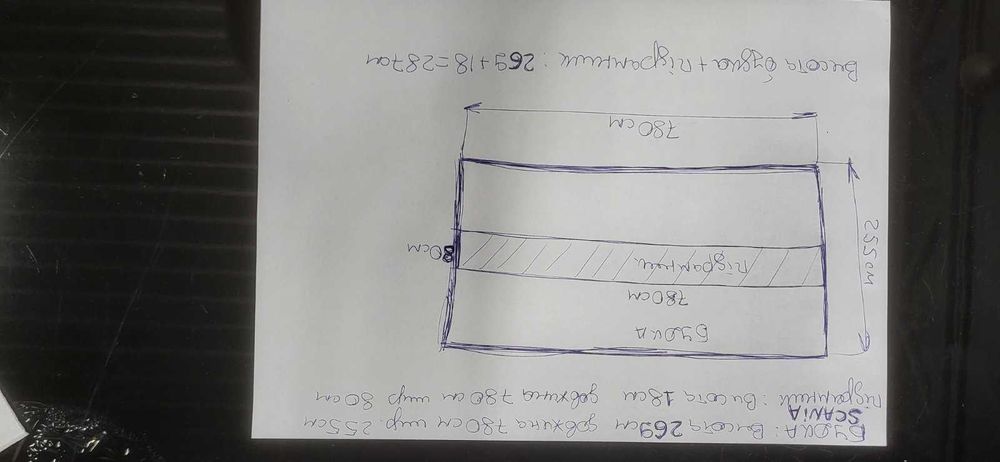 БУДКА: Висота 269 см довжина 780 см шир 255см
SCANIA
Підрамник: Висота 18см довжина 780 см шир 80см
БУДКА
780см
Підрамник
80см
255см
780см
Висота будка + Підрамник: 269+18=287см